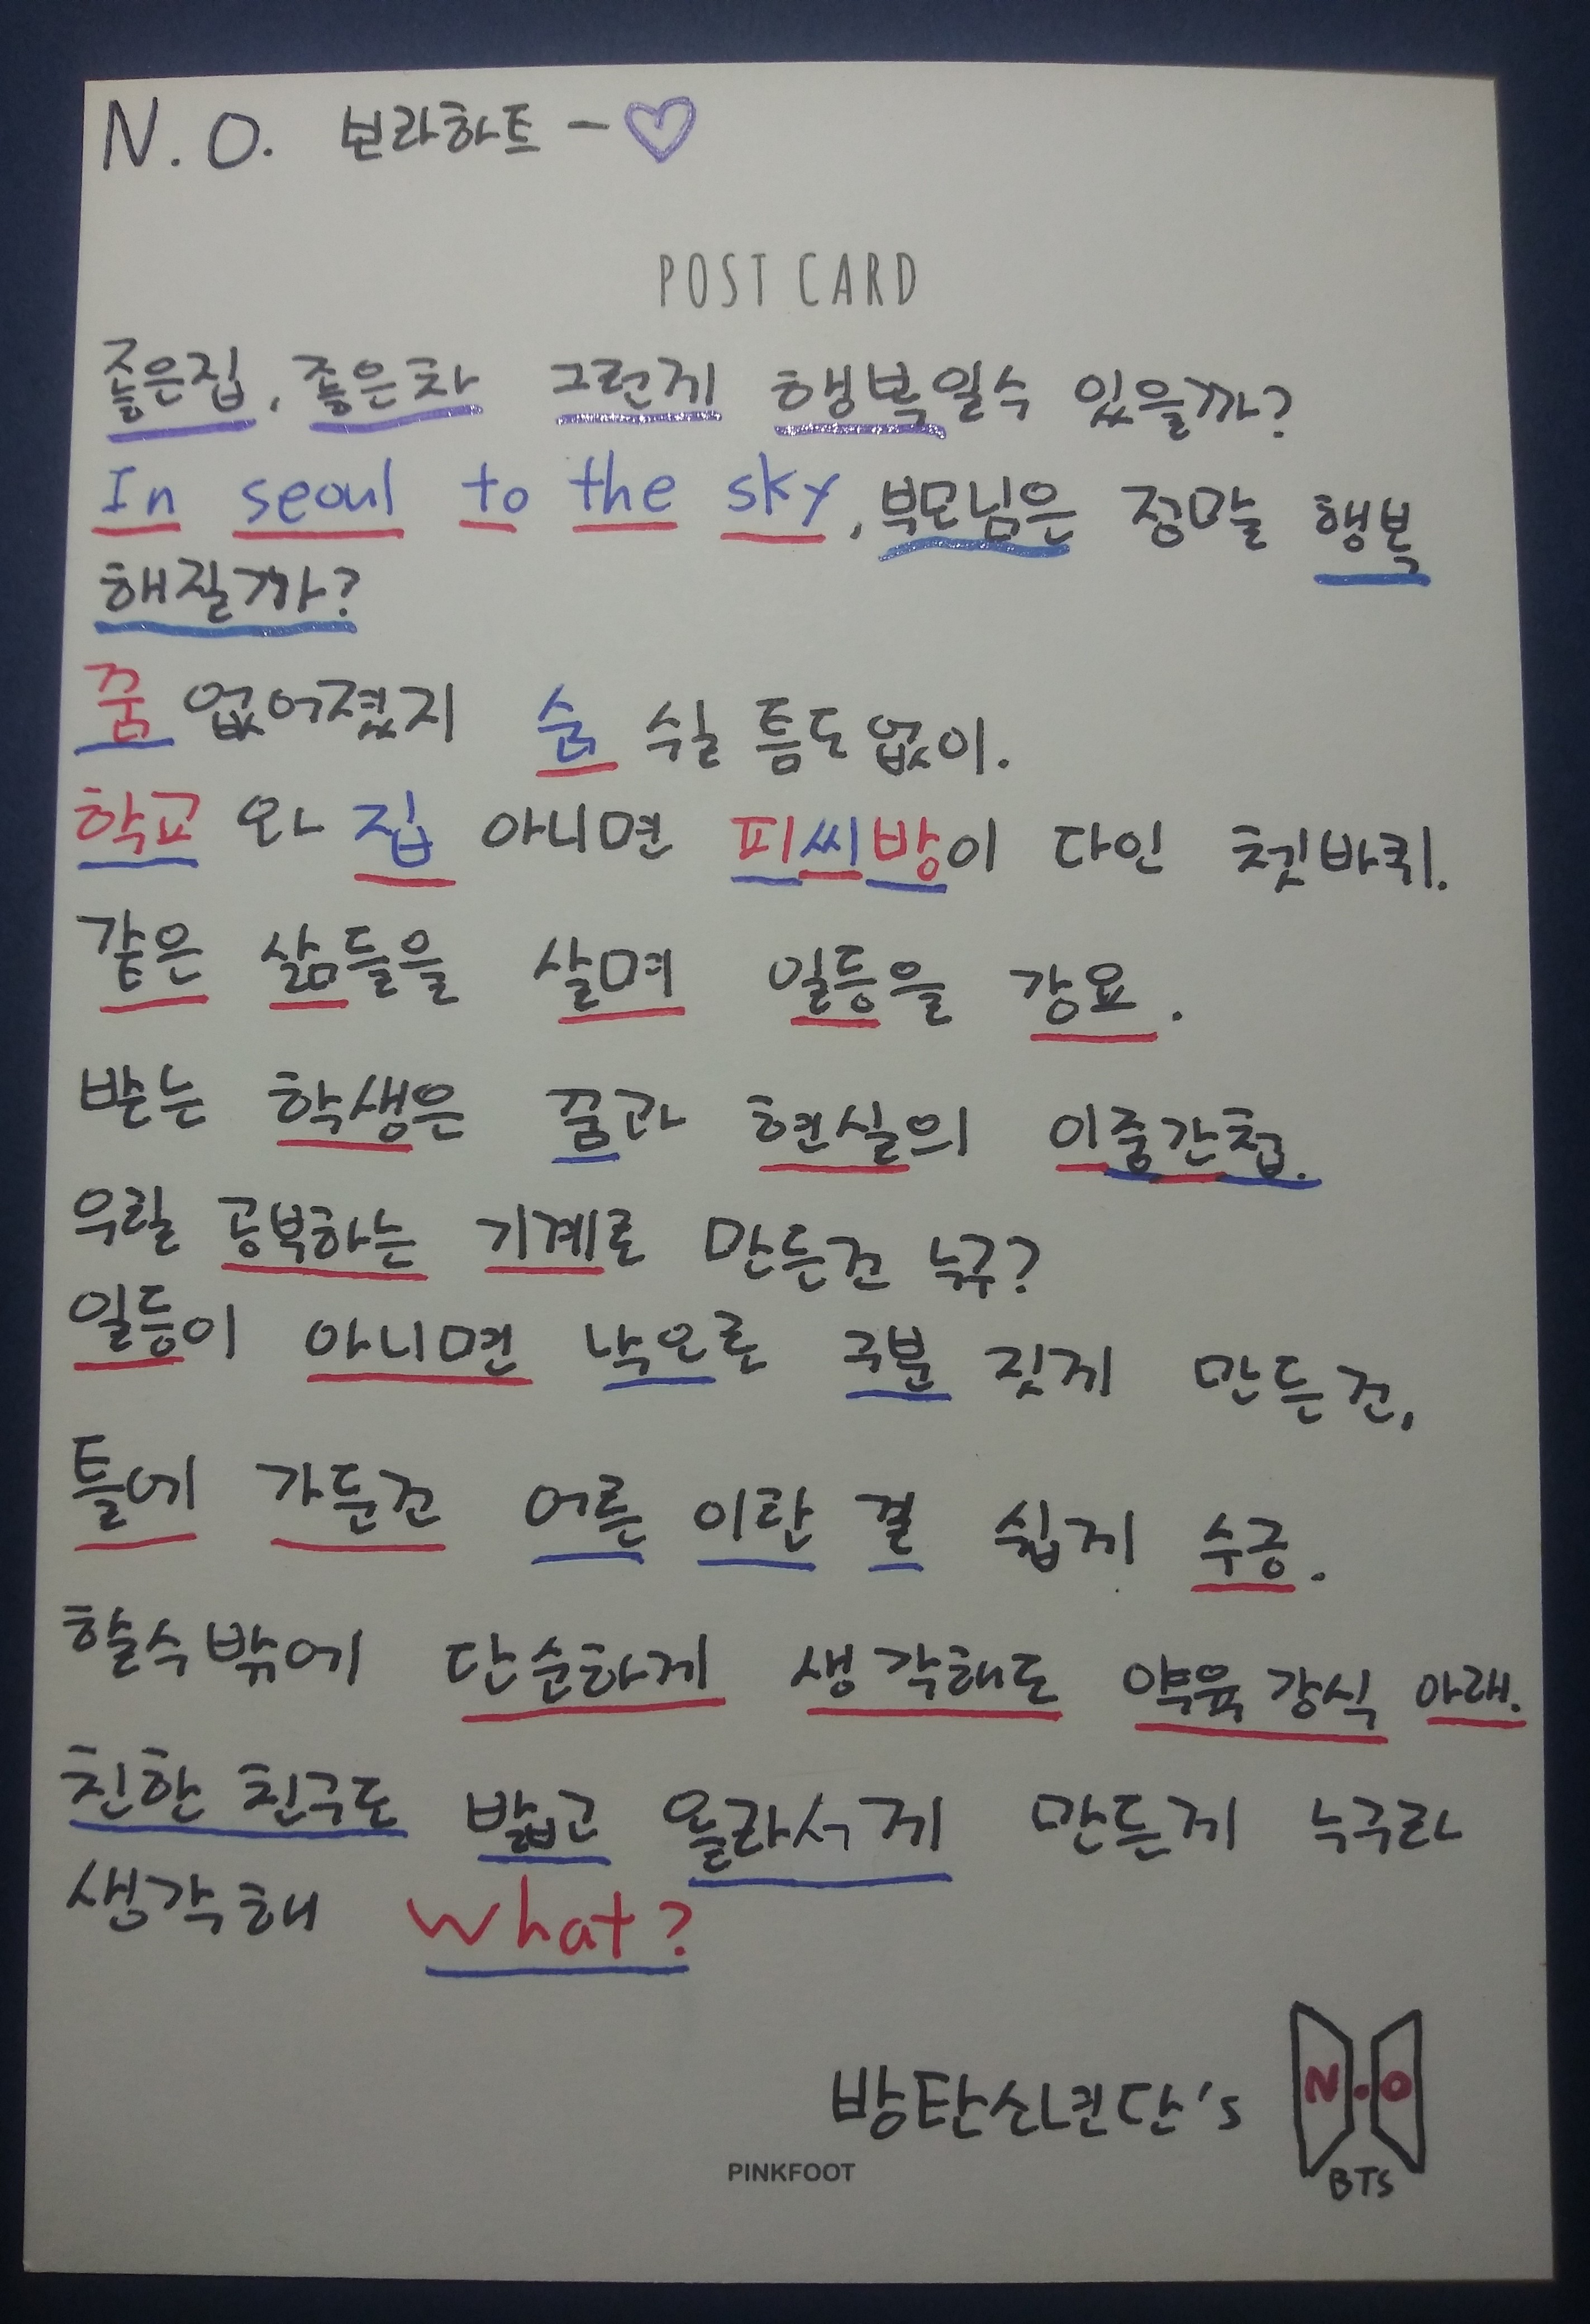 N.O. 보라하트 - ♡
POST CARD
좋은집, 좋은차 그런게 행복일수 있을까?
In seoul to the sky, 부모님은 정말 행복
해질까?
꿈 없어졌지 숨 쉬실 틈도없이.
학교 와 집 아니면 피씨방이 다인 쳇바퀴.
같은 삶들을 살며 일등을 강요.
받는 학생은 꿈과 현실의 이중간첩.
우릴 공부하는 기계로 만든건 누구?
일등이 아니면 낙오로 구분 짓게 만든건,
틀에 가둔건 어른 이란 걸 쉽게 수긍.
할수밖에 단순하게 생각해도 약육강식 아래.
친한 친구도 밟고 올라서게 만든게 누구라
생각해 What?
방탄소년단's
N.O
BTS
PINKFOOT